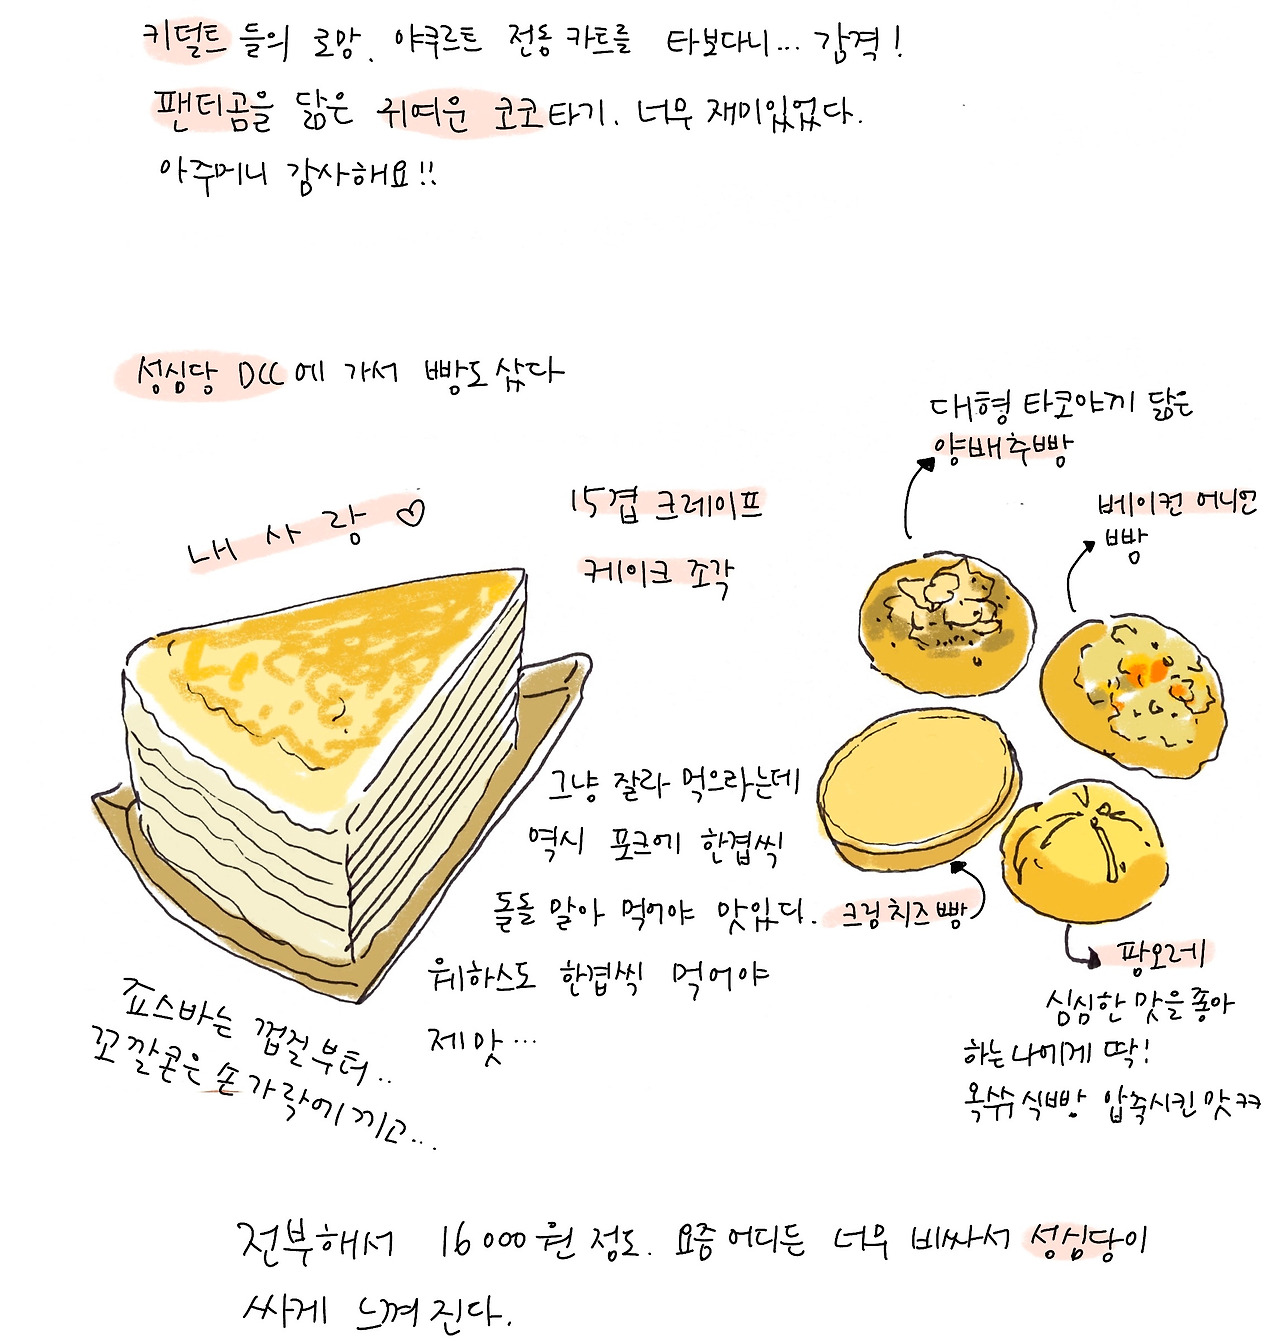 키덜트 들의 로망. 야쿠르트 전동 카트를 타보다니... 감격!
팬더곰을 닮은 귀여운 코코타기. 너무 재미있었다.
아주머니 감사해요!!
성심당 DCC에 가서 빵도 샀다
내 사랑 ♡
15겹 크레이프
케이크 조각
대형 타코야끼 닮은
양배추빵
베이컨 어니언
빵
그냥 잘라 먹으라는데
역시 포크에 한겹씩
돌돌 말아 먹어야 맛있다.
웨하스도 한겹씩 먹어야
제맛...
크림치즈빵
팡오레
심심한 맛을 좋아
하는 나에게 딱!
옥쑤식빵 압축시킨 맛ㅋㅋ
죠스바는 껍질부터..
꼬깔콘은 손가락에 끼고...
전부해서 16000원 정도. 요즘 어디든 너무 비싸서 성심당이
싸게 느껴진다.